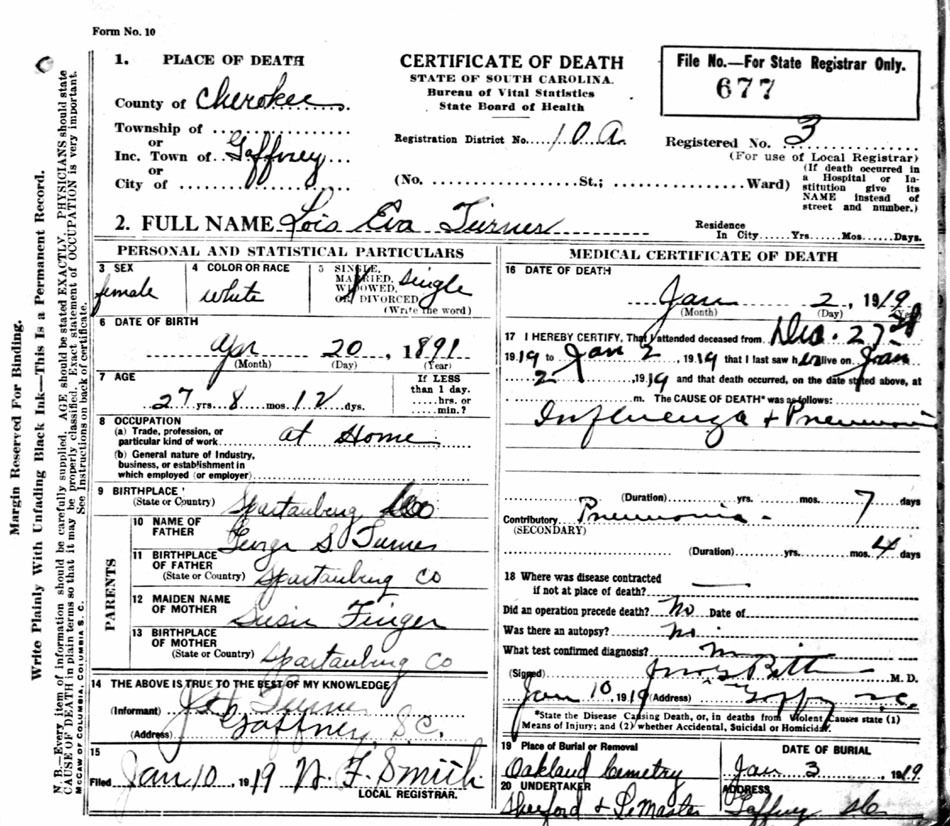 Form No. 10
1. PLACE OF DEATH
County of Cherokee
Township of
or
Inc. Town of Gaffney
or
City of
CERTIFICATE OF DEATH
STATE OF SOUTH CAROLINA.
Bureau of Vital Statistics
State Board of Health
Registration District No. 10 A
(No. St.; Ward)
File No.—For State Registrar Only.
677
Registered No. 3
(For use of Local Registrar)
(If death occurred in
a Hospital or In-
stitution give its
NAME instead of
street and number.)
2. FULL NAME Lois Eva Turner
Residence
In City Yrs. Mos. Days.
PERSONAL AND STATISTICAL PARTICULARS
3 SEX
female
4 COLOR OR RACE
white
5 SINGLE,
MARRIED,
WIDOWED,
OR DIVORCED
single
(Write the word)
6 DATE OF BIRTH
Apr 20, 1891
(Month) (Day) (Year)
7 AGE
27 yrs. 8 mos. 12 dys.
If LESS
than 1 day.
hrs. or
min.?
8 OCCUPATION
(a) Trade, profession, or
particular kind of work at Home
(b) General nature of Industry,
business, or establishment in
which employed (or employer)
9 BIRTHPLACE
(State or Country) Spartanburg Co
PARENTS
10 NAME OF
FATHER
George S Turner
11 BIRTHPLACE
OF FATHER
(State or Country) Spartanburg Co
12 MAIDEN NAME
OF MOTHER
Susie Finger
13 BIRTHPLACE
OF MOTHER
(State or Country) Spartanburg Co
14 THE ABOVE IS TRUE TO THE BEST OF MY KNOWLEDGE
(Informant) Turner
(Address) Gaffney, S.C.
15
Filed Jan 10, 1919 N. F. Smith
LOCAL REGISTRAR.
MEDICAL CERTIFICATE OF DEATH
16 DATE OF DEATH
Jan 2, 1919
(Month) (Day) (Year)
17 I HEREBY CERTIFY, That I attended deceased from Dec. 27
1919 to Jan 2, 1919 that I last saw her alive on Jan
2, 1919 and that death occurred, on the date stated above, at
m. The CAUSE OF DEATH* was as follows:
Influenza + Pneumonia
(Duration) yrs. mos. 7 days
Contributory Pneumonia
(SECONDARY)
(Duration) yrs. mos. 4 days
18 Where was disease contracted
if not at place of death?
Did an operation precede death? No Date of
Was there an autopsy? No
What test confirmed diagnosis?
(Signed) M. D.
Jan 10, 1919 (Address) Gaffney S.C.
*State the Disease Causing Death, or, in deaths from Violent Causes state (1)
Means of Injury; and (2) whether Accidental, Suicidal or Homicidal.
19 Place of Burial or Removal
Oakland Cemetry
DATE OF BURIAL
Jan 3 1919
20 UNDERTAKER
Shuford & LeMaster
ADDRESS
Gaffney SC
Margin Reserved For Binding.
Write Plainly With Unfading Black Ink—This Is a Permanent Record.
N. B.—Every item of information should be carefully supplied. AGE should be stated EXACTLY. PHYSICIANS should state
CAUSE OF DEATH in plain terms so that it may be properly classified. Exact statement of OCCUPATION is very important.
See Instructions on back of certificate.
McCAW OF COLUMBIA, COLUMBIA S. C.